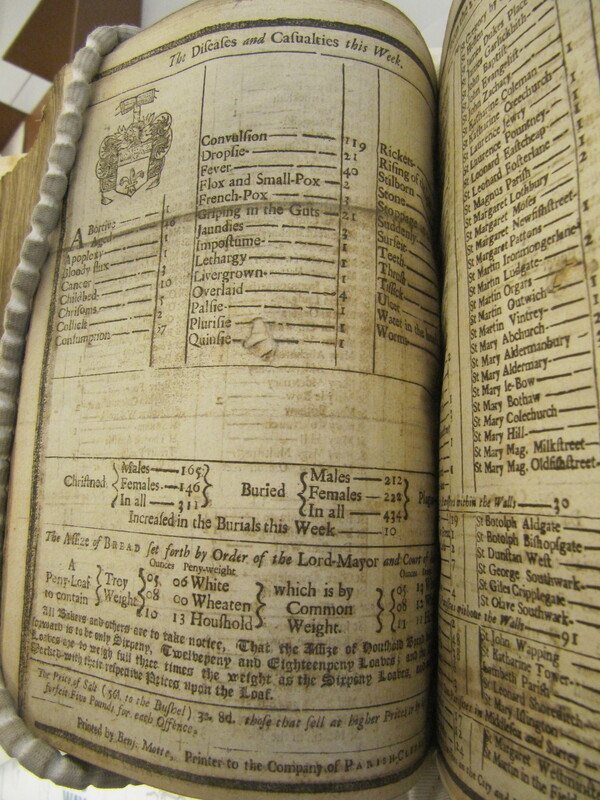 The Diseases and Casualties this Week.
ABortive 1
Aged
Apoplexy 1
Bloody flux 1
Cancer 3
Childbed 10
Chrisoms 5
Collick 2
Consumption
Convulsion 119
Dropsie 21
Fever 40
Flox and Small-Pox 2
French-Pox
Griping in the Guts 21
Jaundies 3
Impostume 1
Lethargy 1
Livergrown 1
Overlaid 4
Palsie 1
Plurisie 1
Quinsie 1
Rickets
Rising of
Stilborn
Stone
Stoppage
Suddenly
Surfeit
Teeth
Thrush
Tissick
Ulcer
Water in the
Worms
Christned Males 165
Females 146
In all 311
Buried Males 212
Females 222
In all 434
Increased in the Burials this Week 10
The Assize of BREAD set forth by Order of the Lord-Mayor and Court of
Ounces Peny-weight
A Peny-Loaf to contain Troy Weight
05 06 White
08 00 Wheaten
10 13 Houshold
which is by Common Weight.
All Bakers and others are to take notice, That the Assize of Houshold
forward is to be only Sixpeny, Twelvepeny and Eighteenpeny Loaves; and
Loaves are to weigh full three times the weight as the Sixpeny Loaves,
with their respective Prices upon the Loaf.
The Price of Salt (56l. to the Bushel) 3s. 8d. those that sell at higher Prices
forfeit Five Pounds for each Offence.
Printed by Benj. Motte, Printer to the Company of PARISH-
James Garlickhith
John Baptist
John Evangelist
John Zachary
Katharine Coleman
Katharine Creechurch
Laurence Jewry
Laurence Pountney
St Leonard Eastcheap
St Leonard Fosterlane
St Magnus Parish
St Margaret Lothbury
St Margaret Moses
St Margaret Newfishstreet
St Margaret Pattons
St Martin Ironmongerlane
St Martin Ludgate
St Martin Orgars
St Martin Outwich
St Martin Vintrey
St Mary Abchurch
St Mary Aldermanbury
St Mary Aldermary
St Mary le-Bow
St Mary Bothaw
St Mary Colechurch
St Mary Hill
St Mary Mag. Milkstreet
St Mary Mag. Oldfishstreet
within the Walls 30
St Botolph Aldgate
St Botolph Bishopsgate
St Dunstan West
St George Southwark
St Giles Cripplegate
St Olave Southwark
without the Walls 91
St John Wapping
St Katharine Tower
Lambeth Parish
St Leonard Shoreditch
St Mary Islington
in Middlesex and Surrey
St Margaret Westminst
St Martin in the Fields